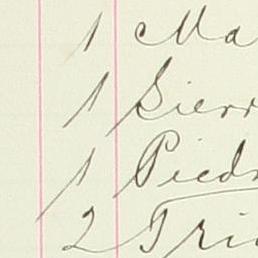 1 Ma
1 Sierr
1 Pied
2 Tri